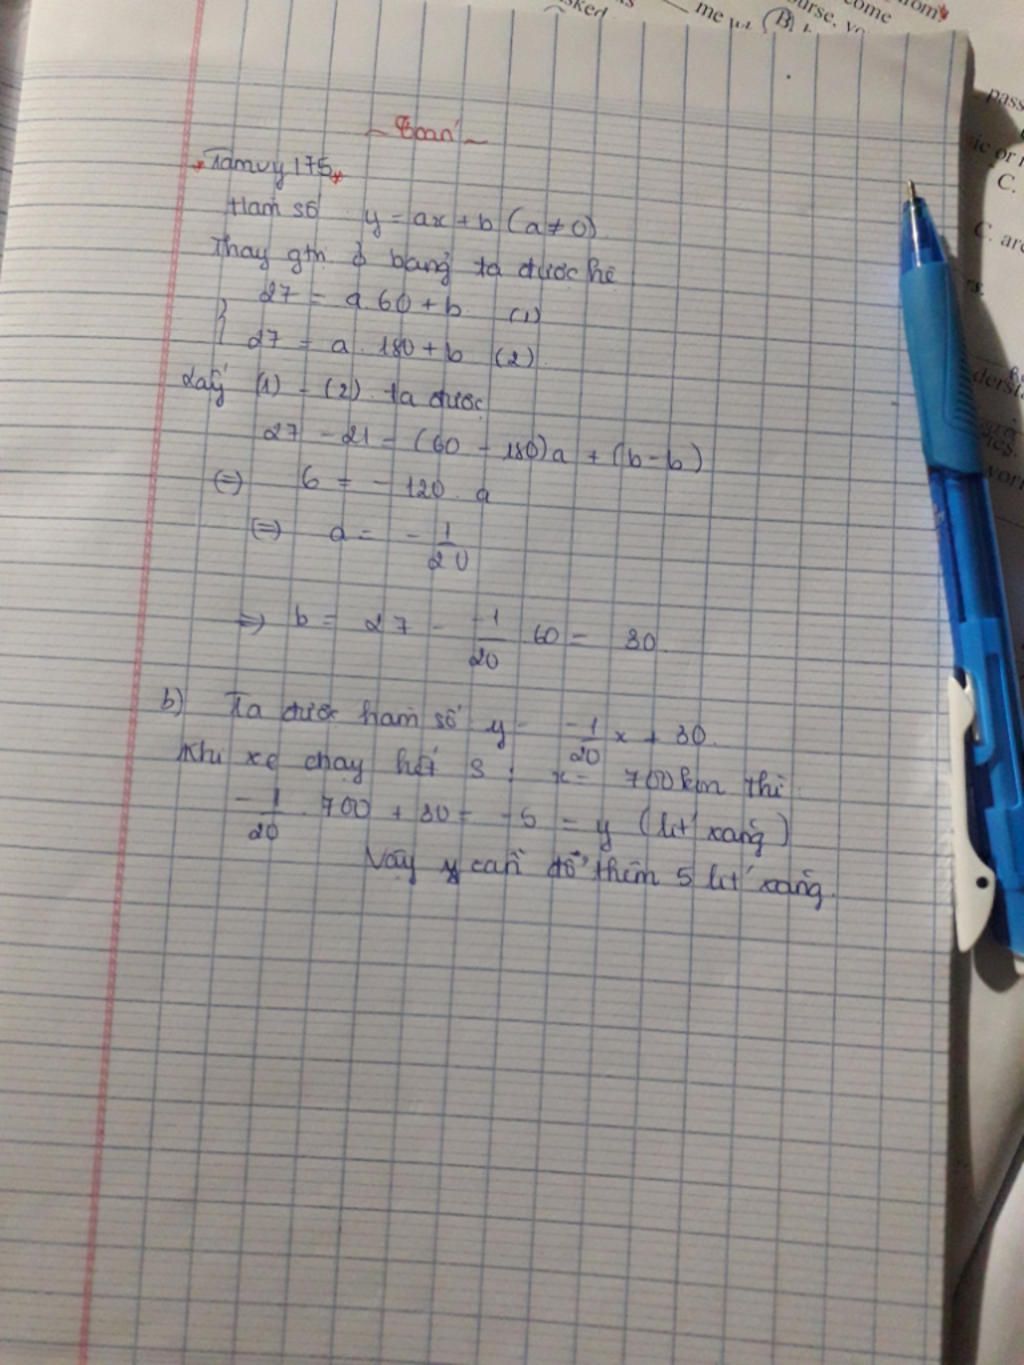 asked
me
B
urse, yo
come
from
pass
ic or
C.
C. are
rs.
derst
ies.
~ Toán ~
*Tamvy175*
Hàm số y = ax + b (a ≠ 0)
Thay gtrị ở bảng ta được hệ
27 = a.60 + b (1)
27 = a.180 + b (2)
Lấy (1) - (2) ta được
27 - 21 = (60 - 180)a + (b - b)
(=) 6 = -120.a
(=) a = -1/20
=> b = 27 - -1/20 60 = 30
b) Ta được hàm số y = -1/20 x + 30.
Khi xe chạy hết S : x = 700km thì
-1/20 . 700 + 30 = -5 = y (lít xăng)
Vậy cần đổ thêm 5 lít xăng.